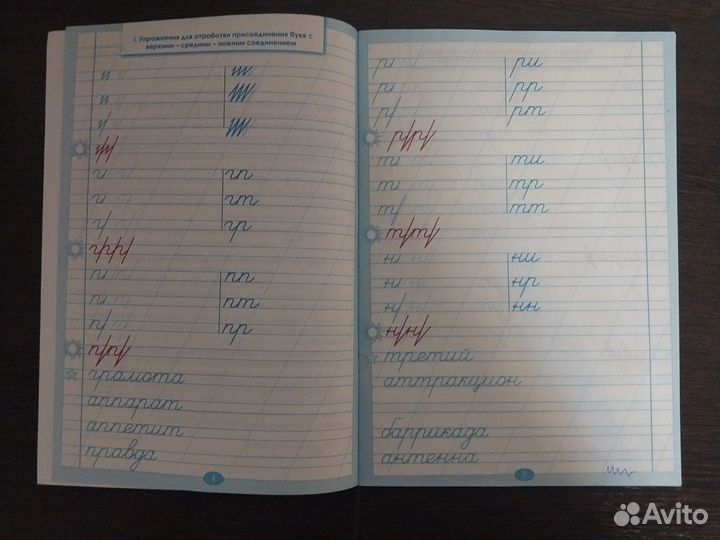 1. Упражнения для отработки присоединения букв с
верхним – средним – нижним соединением
гп
гт
гр
пп
пт
пр
грамота
аппарат
аппетит
правда
4
ри ри
ри рр
р/ рт
р/р/
ти ти
ти тр
т/ тт
т/т/
ни ни
ни нр
н/ нн
н/н/
третий
аттракцион
баррикада
антенна
5
Avito